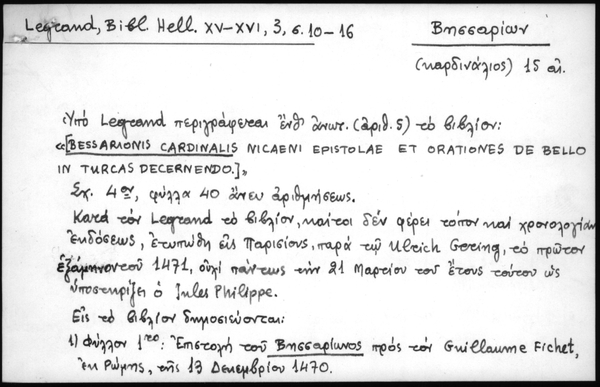 Legrand, Bibl. Hell. XV–XVI, 3, σ. 10–16
Βησσαρίων
(καρδινάλιος) 15 αἰ.
Ὑπό Legrand περιγράφεται ἔνθ' ἀνωτ. (ἀριθ. 5) τό βιβλίον:
«[BESSARIONIS CARDINALIS NICAENI EPISTOLAE ET ORATIONES DE BELLO
IN TURCAS DECERNENDO.]»
Σχ. 4ον, φύλλα 40 ἄνευ ἀριθμήσεως.
Κατά τόν Legrand τό βιβλίον, καίτοι δέν φέρει τόπον καί χρονολογίαν
ἐκδόσεως, ἐτυπώθη εἰς Παρισίους, παρά τῷ Ulrich Gering, τό πρῶτον
ἑξάμηνον τοῦ 1471, οὐχί πάντως τήν 21 Μαρτίου τοῦ ἔτους τούτου ὡς
ὑποστηρίζει ὁ Jules Philippe.
Εἰς τό βιβλίον δημοσιεύονται:
1) Φύλλον 1ro: Ἐπιστολή τοῦ Βησσαρίωνος πρός τόν Guillaume Fichet,
ἐκ Ρώμης, τῆς 13 Δεκεμβρίου 1470.